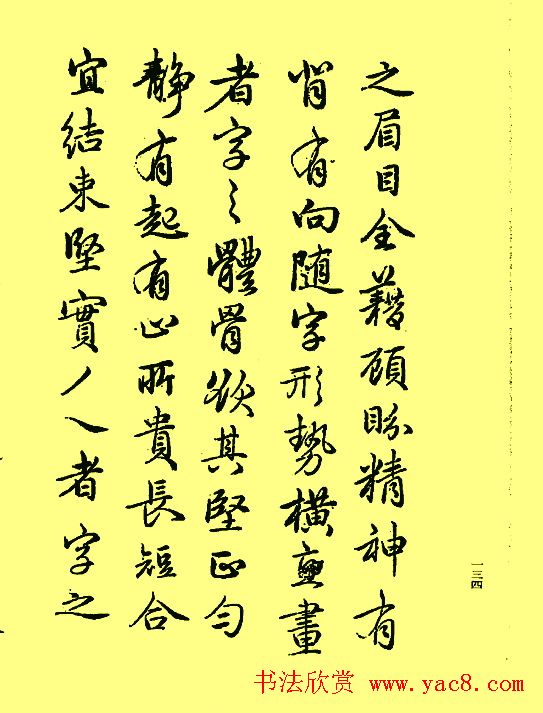 之眉目全藉顧盼精神有
背有向随字形勢橫直畫
者字之體骨欲其堅正勻
靜有起有止所貴長短合
宜結束堅實丿乀者字之
一三四
书法欣赏 www.yac8.com